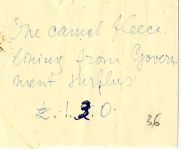 One camel fleece
lining from Govern
ment surplus
£.1.3.0.
36